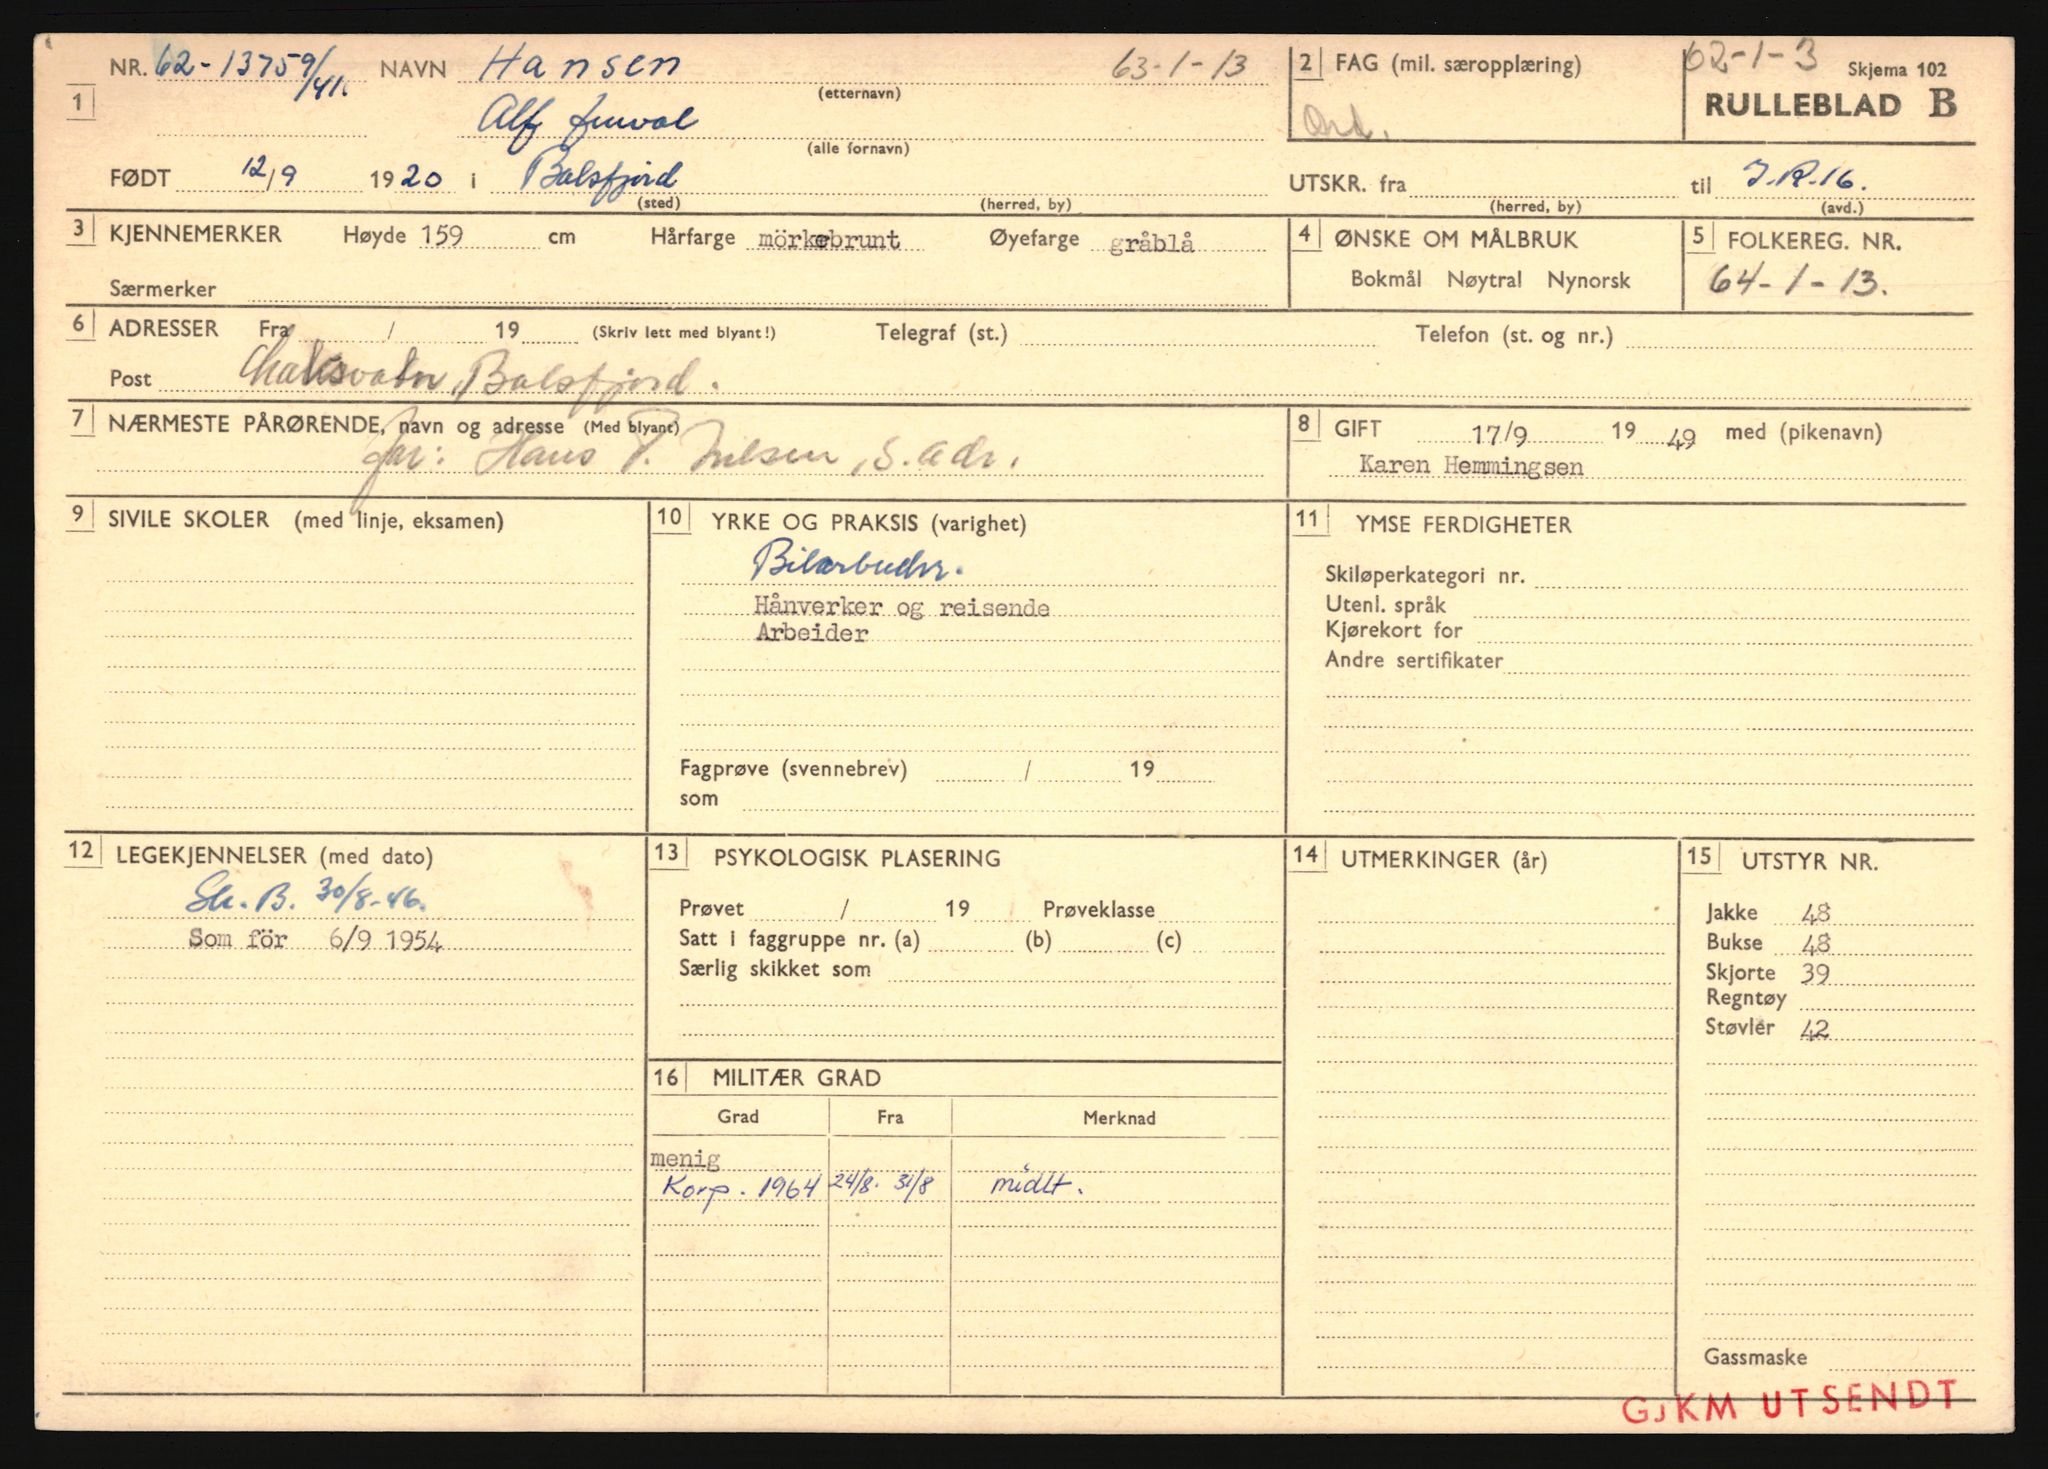 NR. 62-13759/41. NAVN Hansen 63-1-13
(etternavn)
1
Alf
(alle fornavn)
FØDT 12/9 1920 i Balsfjord
(sted) (herred, by)
2 FAG (mil. særopplæring)
Ord.
62-1-3 Skjema 102
RULLEBLAD B
UTSKR. fra til I.R.16.
(herred, by) (avd.)
3 KJENNEMERKER Høyde 159 cm Hårfarge mörkebrunt Øyefarge gråblå
Særmerker
4 ØNSKE OM MÅLBRUK
Bokmål Nøytral Nynorsk
5 FOLKEREG. NR.
64-1-13.
6 ADRESSER Fra / 19 (Skriv lett med blyant!) Telegraf (st.) Telefon (st. og nr.)
Post Balsfjord.
7 NÆRMESTE PÅRØRENDE, navn og adresse (Med blyant)
far: Hans P. Nilsen, s. adr.
8 GIFT 17/9 19 49 med (pikenavn)
Karen Hemmingsen
9 SIVILE SKOLER (med linje, eksamen)
10 YRKE OG PRAKSIS (varighet)
Hånverker og reisende
Arbeider
Fagprøve (svennebrev) / 19
som
11 YMSE FERDIGHETER
Skiløperkategori nr.
Utenl. språk
Kjørekort for
Andre sertifikater
12 LEGEKJENNELSER (med dato)
St. B. 30/8-46.
Som för 6/9 1954
13 PSYKOLOGISK PLASERING
Prøvet / 19 Prøveklasse
Satt i faggruppe nr. (a) (b) (c)
Særlig skikket som
14 UTMERKINGER (år)
15 UTSTYR NR.
Jakke 48
Bukse 48
Skjorte 39
Regntøy
Støvler 42
Gassmaske
16 MILITÆR GRAD
Grad Fra Merknad
menig
Korp. 1964 24/8. 31/8 midlt.
GJKM UTSENDT